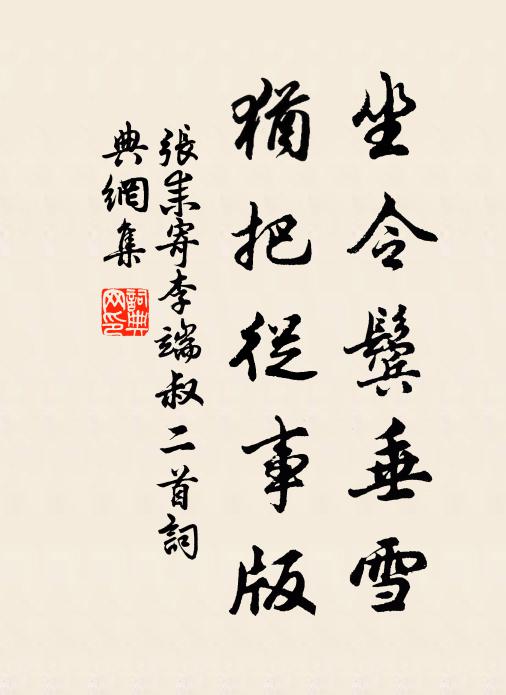 坐令鬓垂雪
猶把從事版
張耒寄李端叔二首詞
典網集
詞典网印